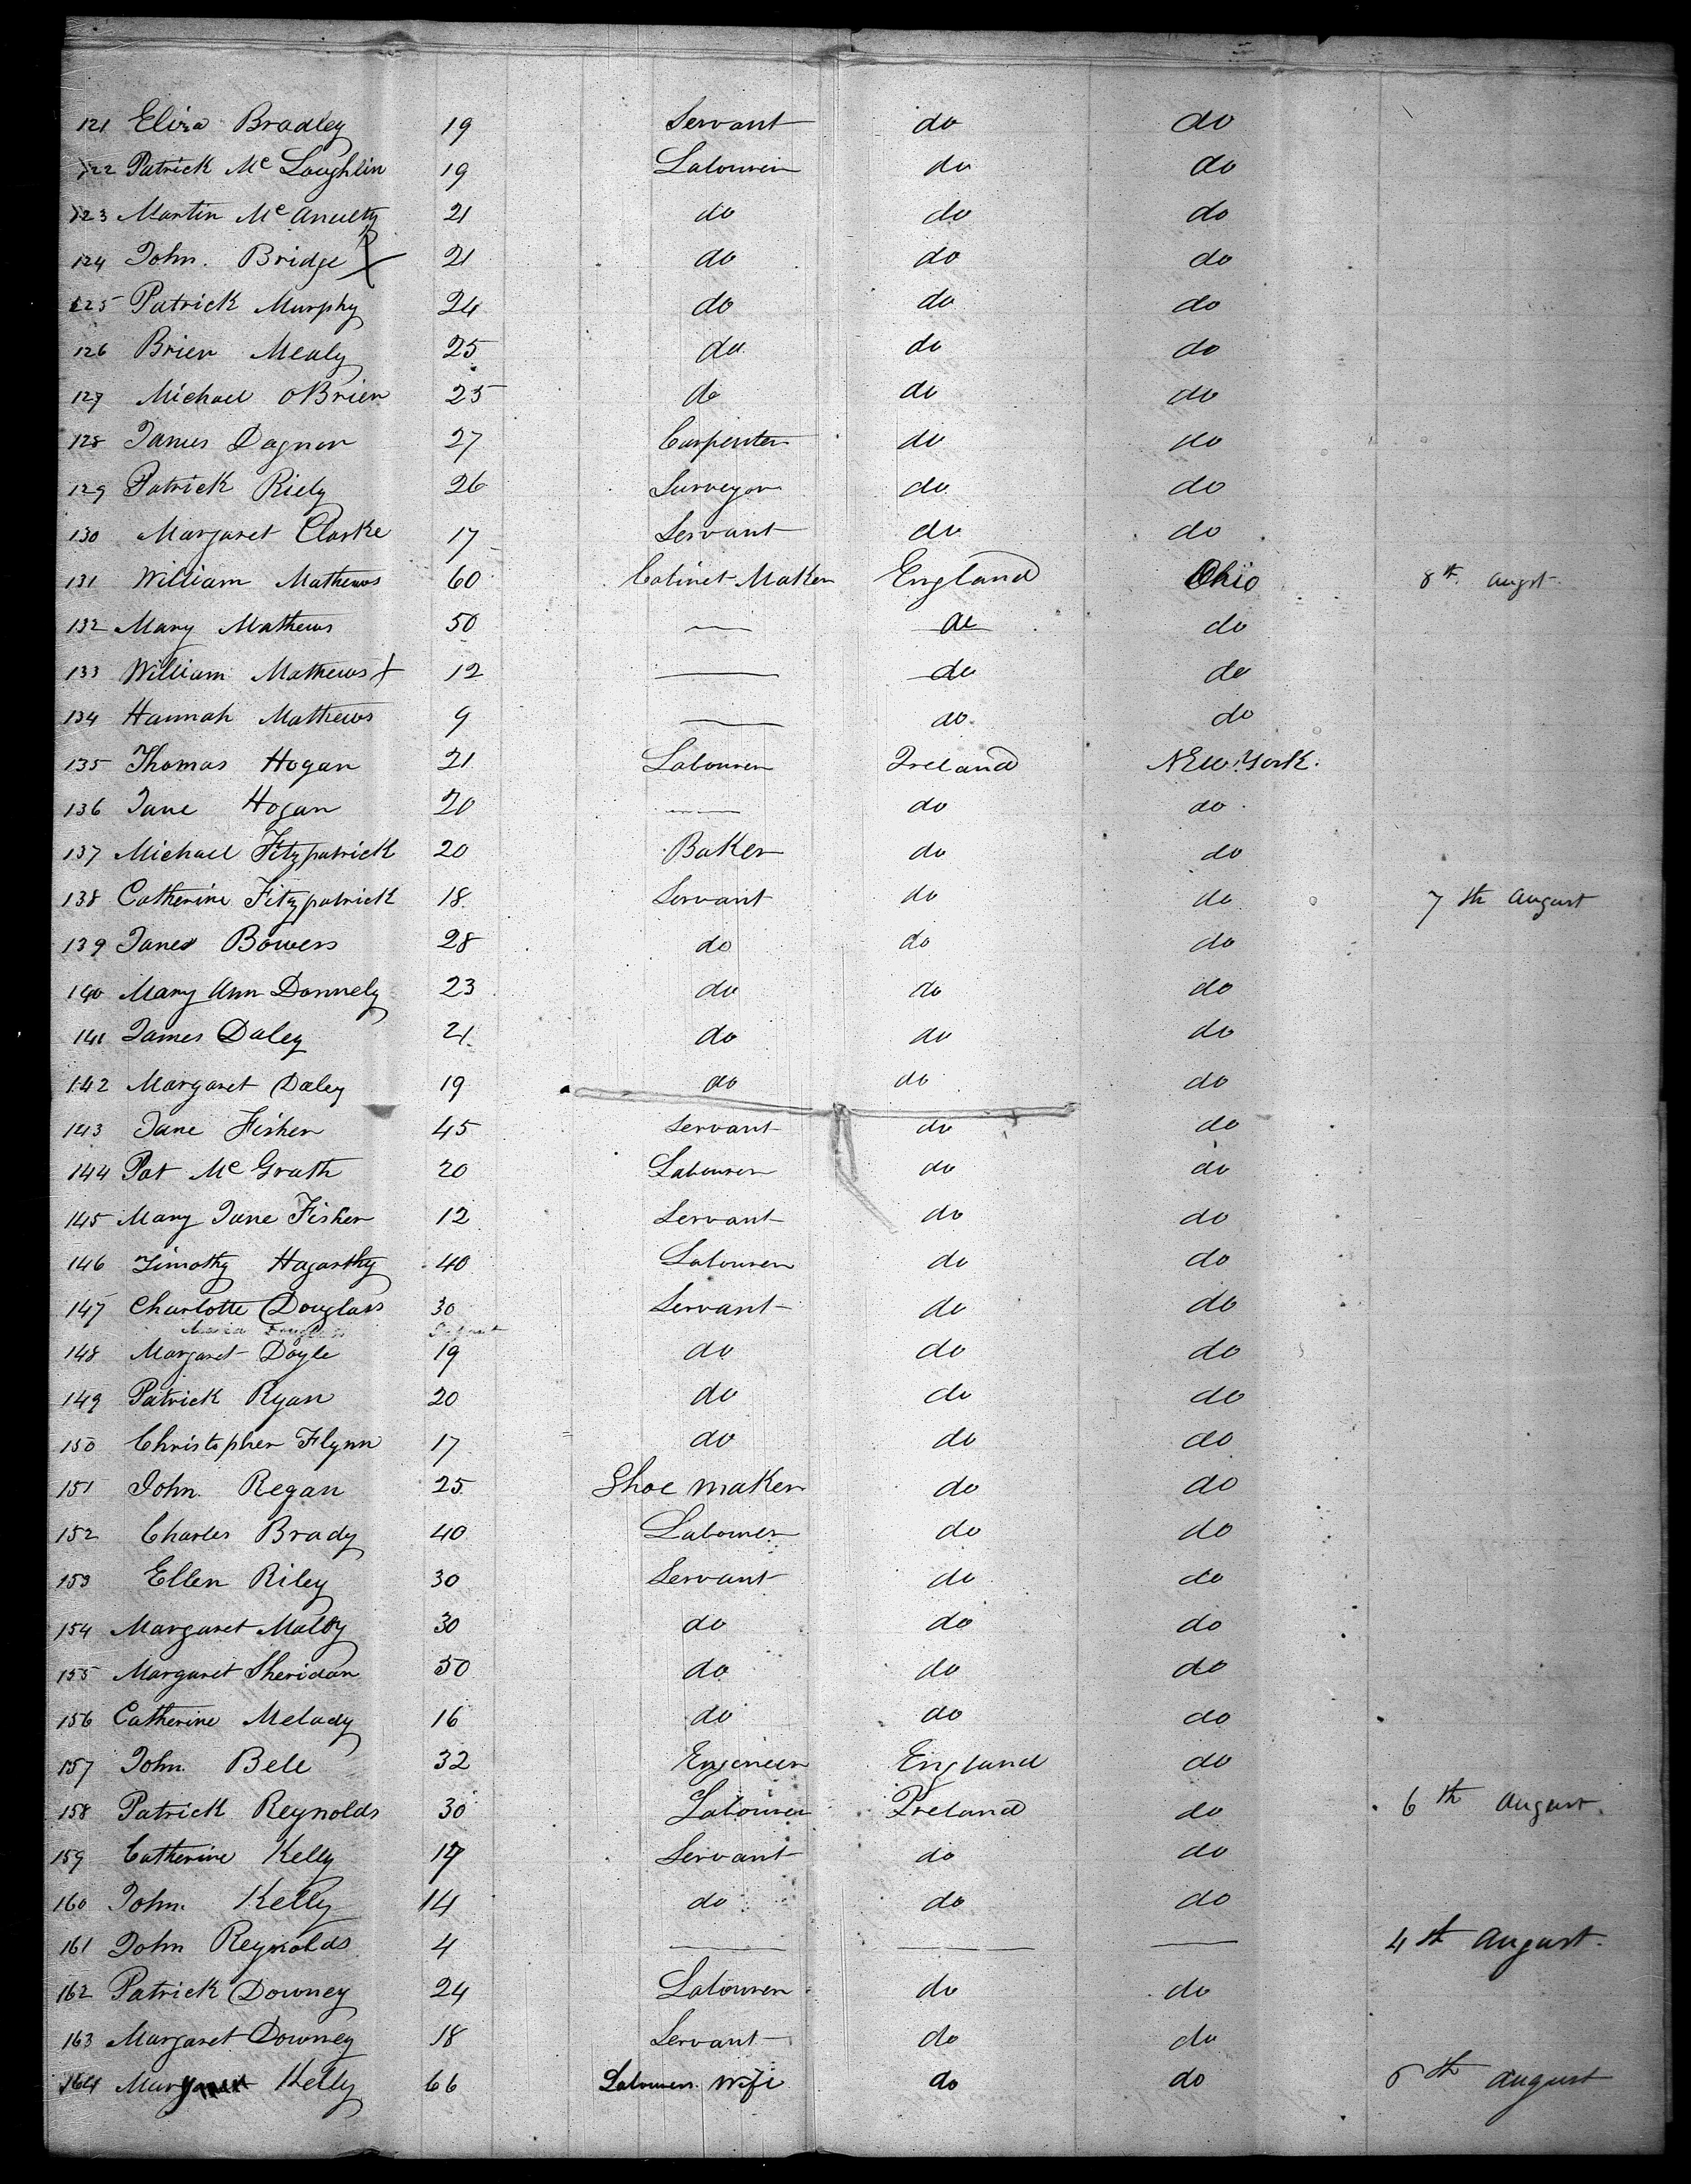 121 Eliza Bradley 19 Servant do do
122 Patrick Mc Loughlin 19 Labourer do do
123 Martin Mc Anulty 21 do do do
124 John Bridge X 21 do do do
125 Patrick Murphy 24 do do do
126 Brien Mealy 25 do do do
127 Michael OBrien 25 do do do
128 James Dagnon 27 Carpenter do do
129 Patrick Riely 26 Surveyor do do
130 Margaret Clarke 17 Servant do do
131 William Mathews 60 Cabinet Maker England Ohio 8th Augst
132 Mary Mathews 50 — do do
133 William Mathews X 12 — do do
134 Hannah Mathews 9 — do do
135 Thomas Hogan 21 Labourer Ireland New York
136 Jane Hogan 20 — do do
137 Michael Fitzpatrick 20 Baker do do
138 Catherine Fitzpatrick 18 Servant do do 7th August
139 Jane Bowers 28 do do do
140 Mary Ann Donnely 23 do do do
141 James Daley 21 do do do
142 Margaret Daley 19 do do do
143 Jane Fisher 45 Servant do do
144 Pat Mc Grath 20 Labourer do do
145 Mary Jane Fisher 12 Servant do do
146 Timothy Hagarthy 40 Labourer do do
147 Charlotte Douglass 30 Servant do do
Maria Douglass Infant
148 Margaret Doyle 19 do do do
149 Patrick Ryan 20 do do do
150 Christopher Flynn 17 do do do
151 John Regan 25 Shoe Maker do do
152 Charles Brady 40 Labourer do do
153 Ellen Riley 30 Servant do do
154 Margaret 30 do do do
155 Margaret Sheridan 50 do do do
156 Catherine Melady 16 do do do
157 John Bell 32 Engeneer England do
158 Patrick Reynolds 30 Labourer Ireland do 6th August
159 Catherine Kelly 17 Servant do do
160 John Kelly 14 do do do
161 John Reynolds 4 — — — 4th August
162 Patrick Downey 24 Labourer do do
163 Margaret Downey 18 Servant do do
164 Margaret Kelly 66 Labourers Wife do do 6th August